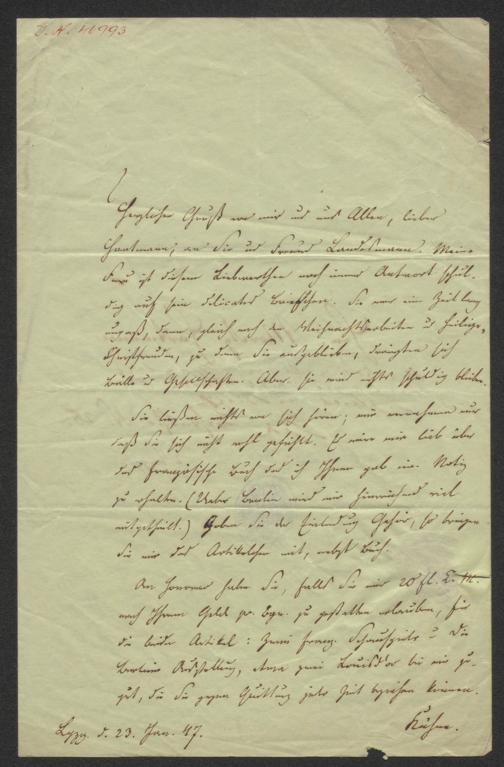 I. N. 46993
Herzlichen Gruß von mir und uns Allen, lieber
Hartmann, an Sie und Freund Landesmann. Meine
Frau ist diesem Liebwerthen noch immer Antwort schul-
dig auf sein delicates Briefchen. Sie war eine Zeit lang
unpaß, dann, gleich nach den Weihnachtsarbeiten und heilige
Christfreuden, zu denen Sie ausgeblieben, drängten sich
Bälle und Gesellschaften. Aber sie wird nichts schuldig bleiben.
Sie ließen nichts von sich hören; wir vernahmen nur
daß Sie sich nicht wohl gefühlt. Es wäre mir lieb über
das französische Buch das ich Ihnen gab eine Notiz
zu erhalten. (Ueber Berlin wird mir hinreichend viel
mitgetheilt.) Geben Sie der Einladung Gehör, so bringen
Sie mir das Artikelchen mit, nebst Buch.
An Honorar haben Sie, falls Sie mir 20 fl. C. M.
nach Ihrem Geld pr. Bgn. zu gestatten erlauben, für
die beiden Artikel: Zwei franz. Schauspiele u. Die
Berliner Ausstellung, etwa zwei Louisd'or bei mir zu-
gut, die Sie gegen Quittung jeder Zeit beziehen können.
Lpzg. d. 23. Jan. 47.
Kühne.